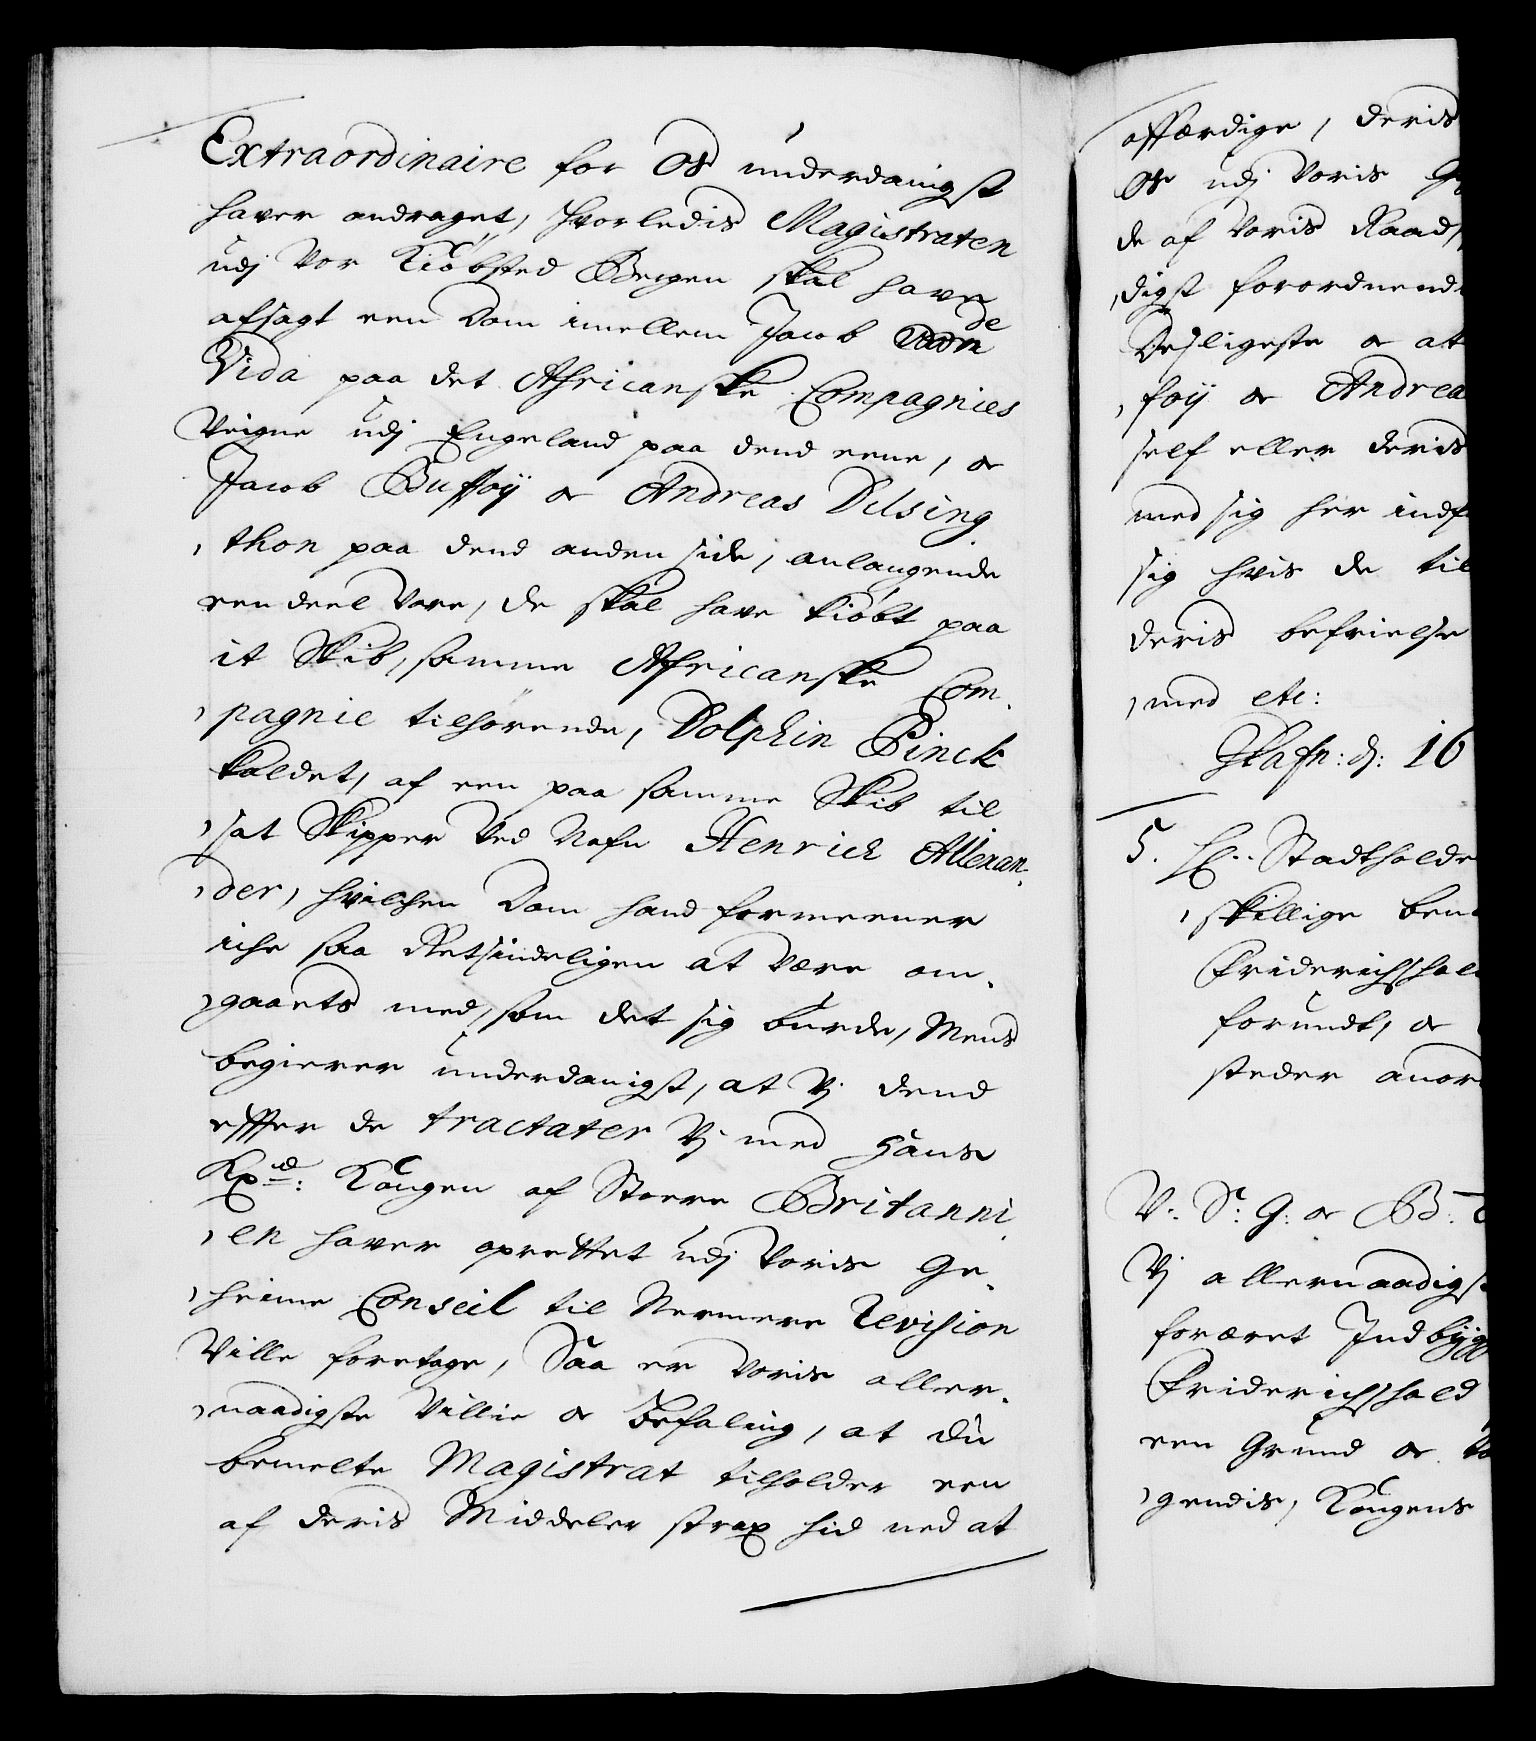 Extraordinaire for Os underdanigst
hafver andraget, hvorledis Magistraten
udj Vor Kiøbsted Bergen skal hafve
afsagt een Dom imellem Jacob de
Vida paa det Africanske Compagnies
Veigne udj Engeland paa dend eene, oc
Jacob Buffoÿ oc Andreas Dilsing
, thon paa dend anden side, anlangende
een deel Vare, de skal hafve kiøbt paa
it Skib, samme Africanske Com,
, pagnie tilhørende, Dolphin Pinck
kaldet, af een paa samme Skib til
, sat Skipper Ved Nafn Henrich Allexan,
, der, hvilchen Dom hand formeener
iche saa Retsindeligen at Være om,
, gaaets med, som det sig burde, Mens
begierer underdanigst, at Vj dend
effter de tractater Vj med Hans
Kongen af Stoere Britanni,
, en hafver oprettet udj Voris Ge,
, heime Conseil til Nermere Revision
Ville foretage, Saa er Voris aller,
, naadigste Villie oc Befaling, at du
bemelte Magistrat tilholder een
af deris Middeler strax hid ned at
affærdige, deris
Os udj Voris
de af Voris Raad,
, digst forordnend
Desligeste oc at
, foÿ oc Andrea
self eller deris
med sig her indf
sig hvis de til
deris befrielse
, med etc:
Hafn: d: 16
5. Stadtholde
, skillige
Friderichshal
forundt, oc
steder anor
V: S: G: oc B:
Vj allernaadigs
foræret Indbÿgg
Friderichshald
een Grund oc
, gendis, Kongens